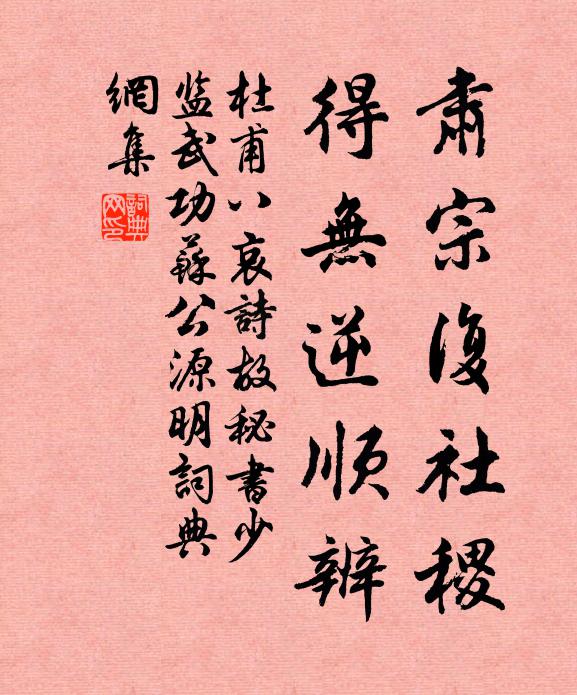 肅宗復社稷
得無逆順辨
杜甫八哀詩故秘書少
监武功蘇公源明詞典
網集
詞典
网印